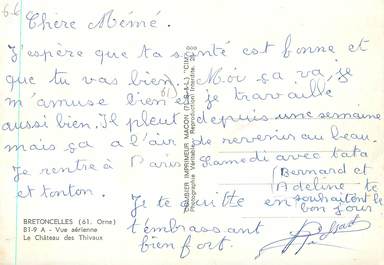 66
Chère Mémé.
J'espère que ta santé est bonne et
que tu vas bien. Moi ça va, je
m'amuse bien et je travaille
aussi bien. Il pleut depuis une semaine
mais ça a l'air de revenir au beau.
Je rentre à Paris Samedi avec tata
et tonton.
(Bernard et
Adeline te
souhaitent le
bon jour
Je te quitte en
t'embrassant
bien fort.
BRETONCELLES (61. Orne)
B1-9 A - Vue aérienne
Le Château des Thivaux
COMBIER IMPRIMEUR MACON (S.-&-L.) "CIM"
Photographie Véritable - Reproduction Interdite